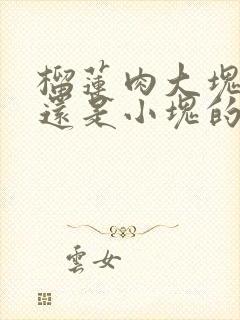 榴蓮肉大塊
還是小塊的
雲女